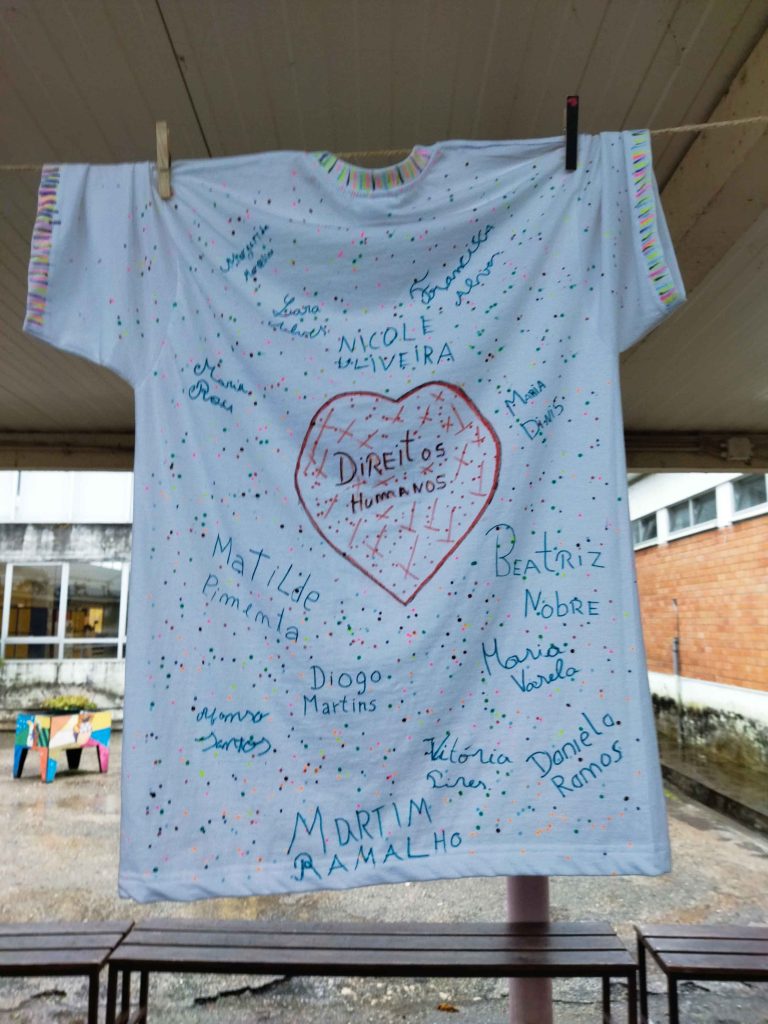 Margarida
Luara
Francisca
NICOLE
OLIVEIRA
Maria
MARIA
DINIS
DIREITOS
HUMANOS
MATILDE
Pimenta
BEATRIZ
NOBRE
Maria
Varela
Diogo
Martins
Afonso
Santos
Vitória
Pires
Daniela
Ramos
MARTIM
RAMALHO